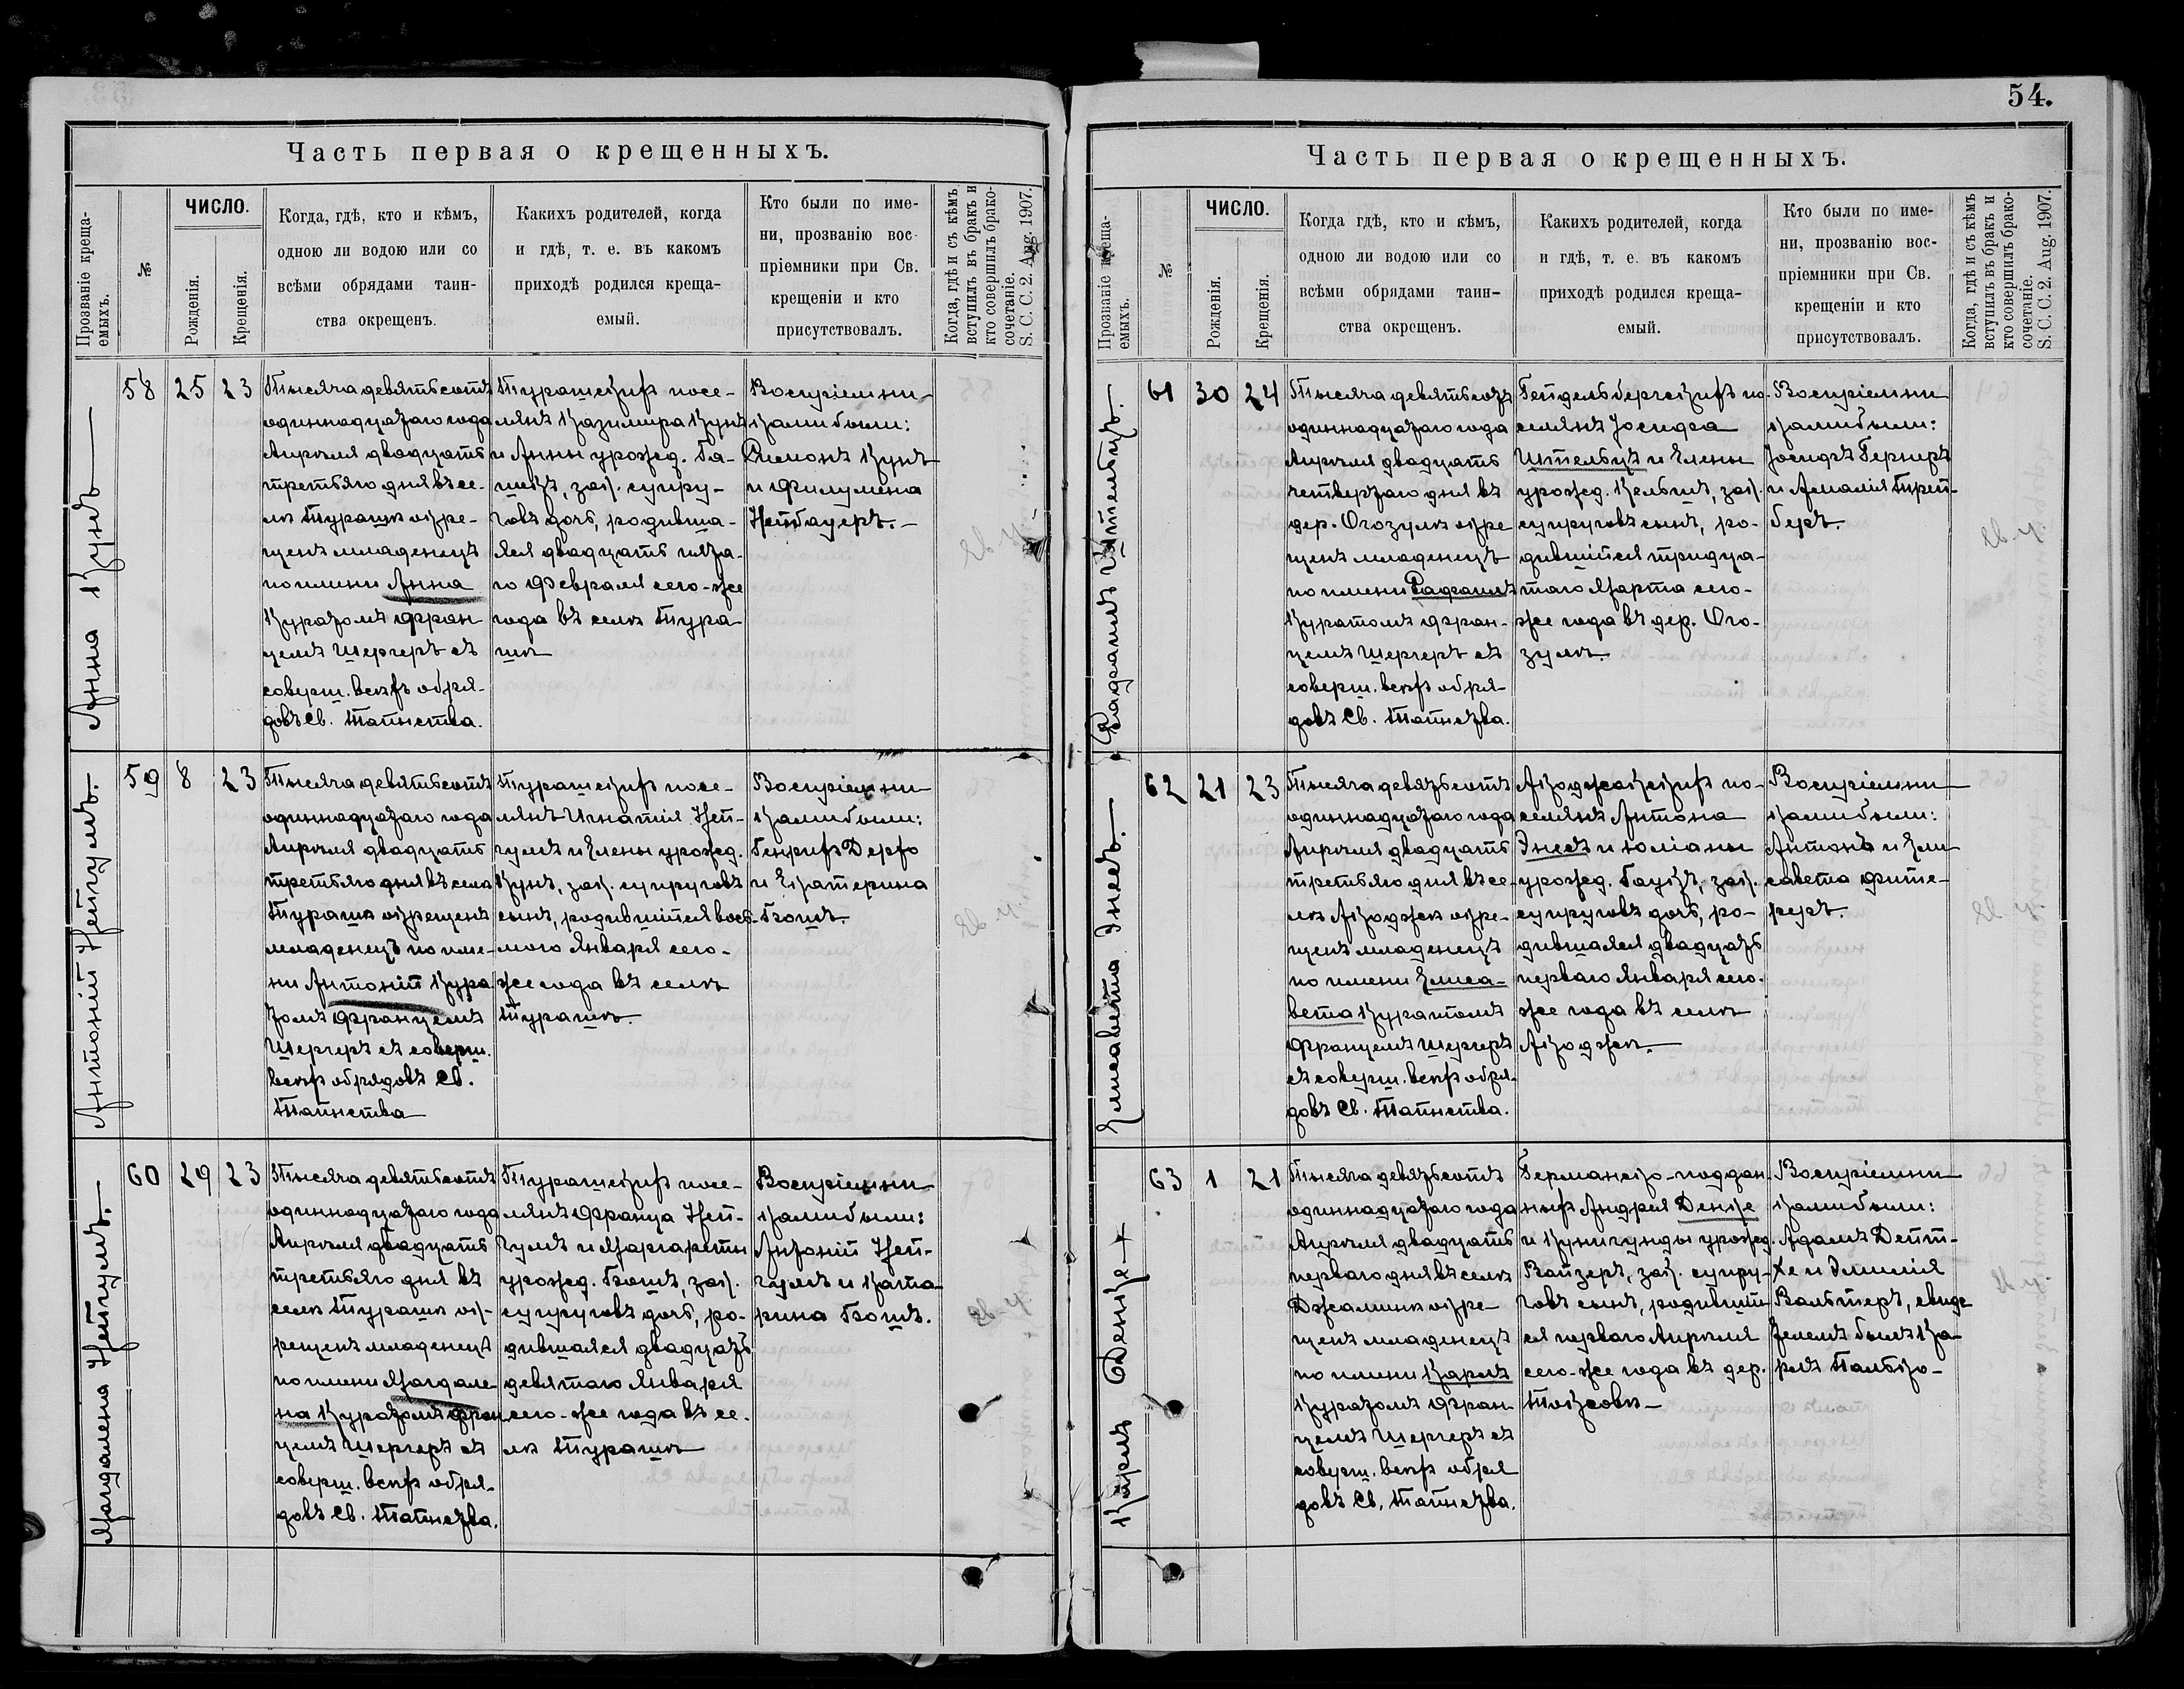 54.
Часть первая о крещенныхъ.
Прозваніе креща-
емыхъ.
№
ЧИСЛО.
Рожденія.
Крещенія.
Когда, гдѣ, кто и кѣмъ,
одною ли водою или со
всѣми обрядами таин-
ства окрещенъ.
Какихъ родителей, когда
и гдѣ, т. е. въ какомъ
приходѣ родился креща-
емый.
Кто были по име-
ни, прозванію вос-
пріемники при Св.
крещеніи и кто
присутствовалъ.
Когда, гдѣ и съ кѣмъ
вступилъ въ бракъ и
кто совершилъ брако-
сочетаніе.
S. C. C. 2. Aug. 1907.
Анна Кунъ
58
25
23
Тысяча девятьсотъ
одиннадцатаго года
Апрѣля двадцать
третьяго дня въ се-
лѣ Турашѣ окре-
щенъ младенецъ
по имени Анна
Куратомъ Фран
цемъ Шергеръ съ
соверш. всѣхъ обря-
довъ Св. Таинства.
Турашскихъ посе-
лянъ Казимира Кунъ
и Анны урожд. Га-
шкъ, зак. супру-
говъ дочь, родивша-
яся двадцать пята-
го Февраля сего-же
года въ селѣ Тура
шѣ
Воспріемни-
ками были:
Симонъ Кунъ
и Филумена
Нейбауеръ.-
Антоній Нейгумъ.
59
8
23
Тысяча девятьсотъ
одиннадцатаго года
Апрѣля двадцать
третьяго дня въ селѣ
Турашѣ окрещенъ
младенецъ по име-
ни Антоній Кура
томъ Францемъ
Шергеръ съ соверш.
всѣхъ обрядовъ Св.
Таинства
Турашскихъ посе-
лянъ Игнатія Ней-
гумъ и Елены урожд.
Кунъ, зак. супруговъ
сынъ, родившійся вось-
мого Января сего-
же года въ селѣ
Турашѣ.
Воспріемни
ками были:
Генрихъ Дерфо
и Екатерина
Бошъ.
Магдалена Нейгумъ.
60
29
23
Тысяча девятьсотъ
одиннадцатаго года
Апрѣля двадцать
третьяго дня въ
селѣ Турашѣ ок-
рещенъ младенецъ
по имени Магдале-
на Куратомъ Фран
цемъ Шергеръ съ
соверш. всѣхъ обря-
довъ Св. Таинства.
Турашскихъ посе-
лянъ Франца Ней-
гумъ и Маргареты
урожд. Бошъ, зак.
супруговъ дочь, ро-
дившаяся двадцать
девятаго Января
сего-же года въ се-
лѣ Турашѣ
Воспріемни
ками были:
Антоній Ней-
гумъ и Ката-
рина Бошъ.
Часть первая о крещенныхъ.
Прозваніе креща-
емыхъ.
№
ЧИСЛО.
Рожденія.
Крещенія.
Когда гдѣ, кто и кѣмъ,
одною ли водою или со
всѣми обрядами таин-
ства окрещенъ.
Какихъ родителей, когда
и гдѣ, т. е. въ какомъ
приходѣ родился креща-
емый.
Кто были по име-
ни, прозванію вос-
пріемники при Св.
крещеніи и кто
присутствовалъ.
Когда, гдѣ и съ кѣмъ
вступилъ въ бракъ и
кто совершилъ брако-
сочетаніе.
S. C. C. 2. Aug. 1907.
Рафаилъ Штельцъ.
61
30
24
Тысяча девятьсотъ
одиннадцатаго года
Апрѣля двадцать
четвертаго дня въ
дер. Огозулѣ окре
щенъ младенецъ
по имени Рафаилъ
Куратомъ Фран-
цемъ Шергеръ съ
соверш. всѣхъ обря-
довъ Св. Таинства.
Гейдельбергскихъ по-
селянъ Іосифа
Штельцъ и Елены
урожд. Кельшъ, зак.
супруговъ сынъ, ро-
дившійся тридца-
таго Марта сего-
же года въ дер. Ого-
зулѣ.
Воспріемни
ками были:
Іосифъ Гернръ
и Амалія Трей-
беръ.
Елисавета Энсъ.
62
21
23
Тысяча девятьсотъ
одиннадцатаго года
Апрѣля двадцать
третьяго дня въ се-
лѣ Акоджѣ окре-
щенъ младенецъ
по имени Елиса-
вета Куратомъ
Францемъ Шергеръ
съ соверш. всѣхъ обря-
довъ Св. Таинства.
Акоджскихъ по-
селянъ Антона
Энсъ и Юліаны
урожд. Гаукъ, зак.
супруговъ дочь, ро-
дившаяся двадцать
перваго Января сего-
же года въ селѣ
Акоджѣ.
Воспріемни
ками были:
Антонъ и Ели
савета Фите-
реръ.
Карлъ Денке +
63
1
21
Тысяча девятьсотъ
одиннадцатаго года
Апрѣля двадцать
перваго дня въ селѣ
Джаминѣ окре-
щенъ младенецъ
по имени Карлъ
Куратомъ Фран-
цемъ Шергеръ съ
соверш. всѣхъ обря
довъ Св. Таинства.
Германско-поддан-
ныхъ Андрея Денке
и Кунигунды урожд.
Вайзеръ, зак. супру-
говъ сынъ, родившій-
ся перваго Апрѣля
сего-же года въ дер.
Токсовѣ
Воспріемни
ками были:
Адамъ Дейт-
хе и Эмилія
Вальтеръ, свидѣ
телемъ былъ Ка
рлъ Палько